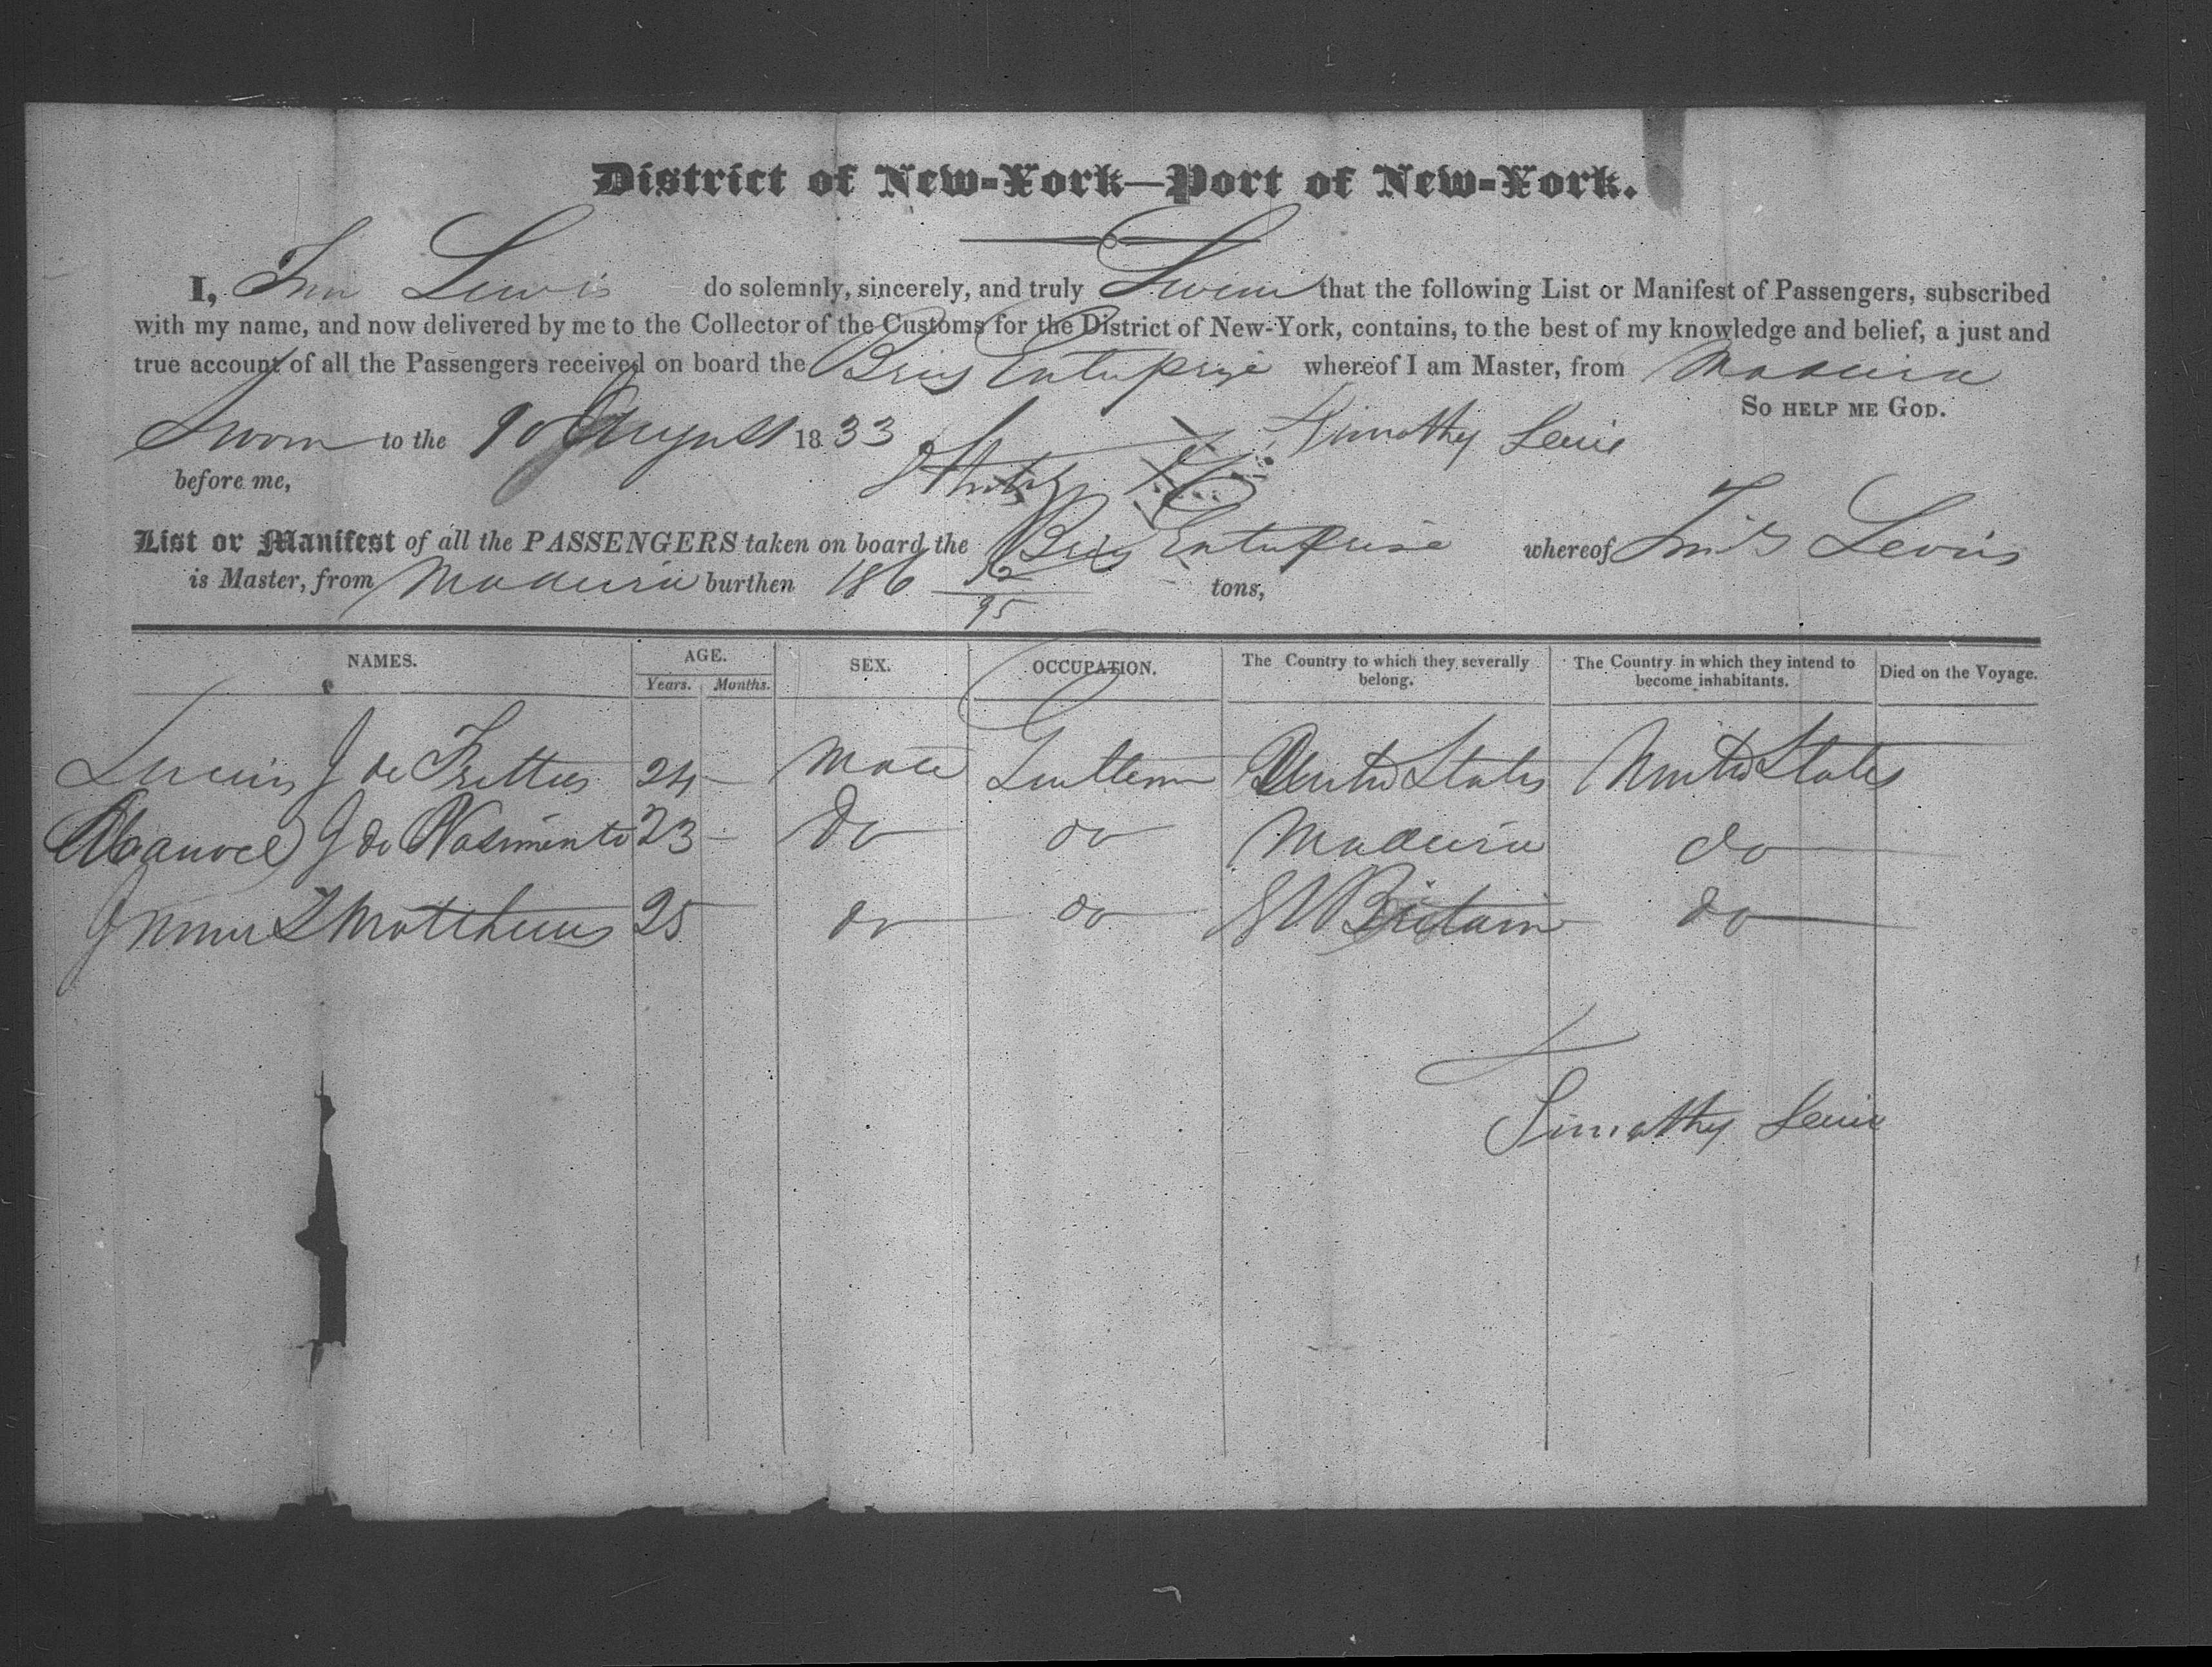 District of New-York—Port of New-York.
I, Lewis do solemnly, sincerely, and truly Swear that the following List or Manifest of Passengers, subscribed
with my name, and now delivered by me to the Collector of the Customs for the District of New-York, contains, to the best of my knowledge and belief, a just and
true account of all the Passengers received on board the Brig Enterprize whereof I am Master, from Madeira
SO HELP ME GOD.
Sworn to the August 1833 Timothy Lewis
before me,
List or Manifest of all the PASSENGERS taken on board the Brig Enterprise whereof Lewis
is Master, from Madeira burthen 186 /95 tons,
NAMES. AGE. SEX. OCCUPATION. The Country to which they severally belong. The Country in which they intend to become inhabitants. Died on the Voyage.
Years. Months.
J de 24 — Male Gentleman United States United States
Manoel J de Nasimento 23 — Do do Madeira do
Matthews 25 do do Gt Britain do
Timothy Lewis